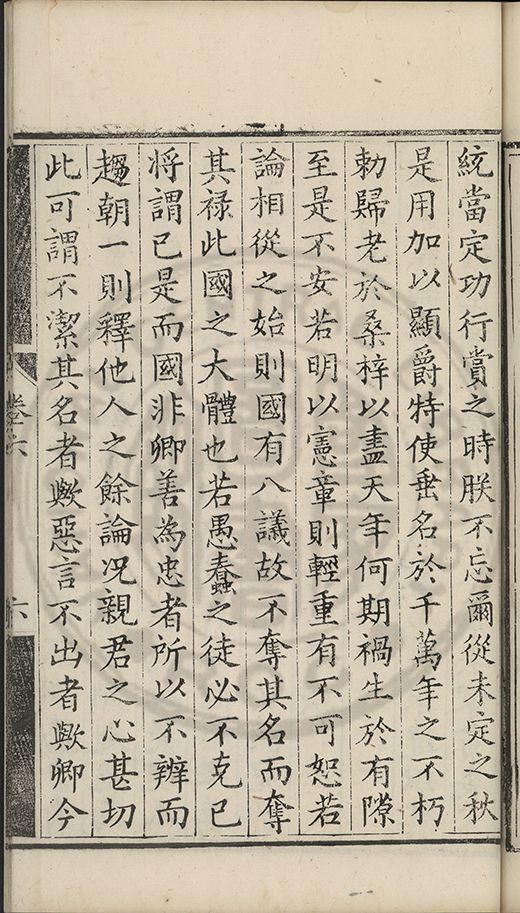 統當定功行賞之時朕不忘爾從未定之秋
是用加以顯爵特使垂名於千萬年之不朽
勅歸老於桑梓以盡天年何期禍生於有隙
至是不安若明以憲章則輕重有不可恕若
論相從之始則國有八議故不奪其名而奪
其禄此國之大體也若愚蠢之徒必不克己
将謂已是而國非卿善為忠者所以不辨而
趨朝一則釋他人之餘論况親君之心甚切
此可謂不潔其名者歟惡言不出者歟卿今
卷六
六